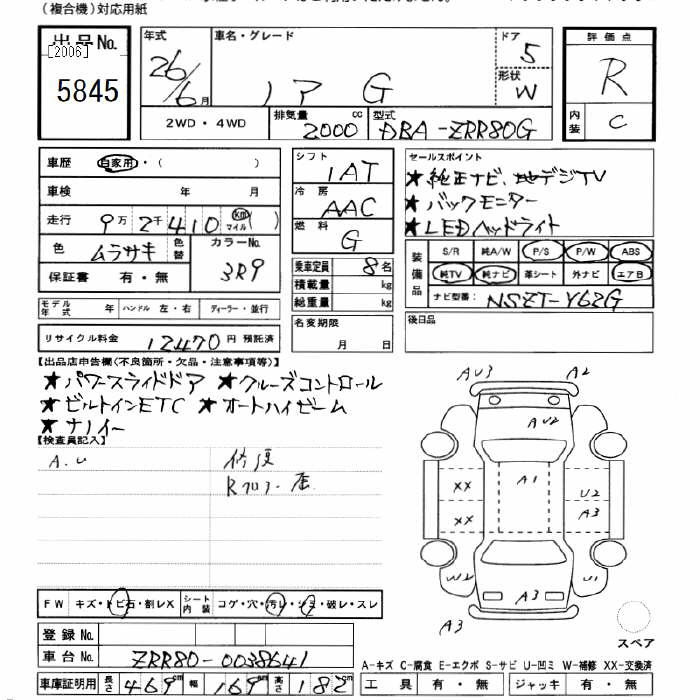 (複合機)対応用紙
出品No.
[2006]
5845
年式 26/6月
車名・グレード ノア G
ドア 5
形状 W
評価点 R
内装 C
2WD・4WD
排気量 2000 cc
型式 DBA-ZRR80G
車歴 自家用・( )
車検 年 月
走行 9万2千410 km マイル ( )
色 ムラサキ 色替
カラーNo. 3R9
保証書 有・無
シフト IAT
冷房 AAC
燃料 G
乗車定員 8名
積載量 kg
総重量 kg
セールスポイント
★純正ナビ、地デジTV
★バックモニター
★LEDヘッドライト
装備品 S/R 純A/W P/S P/W ABS
純TV 純ナビ 革シート 外ナビ エアB
ナビ型番: NSZT-Y62G
モデル年式 年 ハンドル 左・右 ディーラー・並行
リサイクル料金 12470円 預託済
名変期限 月 日
後日品
【出品店申告欄(不良箇所・欠品・注意事項等)】
★パワースライドドア ★クルーズコントロール
★ビルトインETC ★オートハイビーム
★ナノイー
【検査員記入】
A.U 修復
Rフロアー
AU3 A2
AU2
A1
XX U2
XX A3
W2 U1
A3
A3
スペア
FW キズ・トビ石・割レX シート内装 コゲ・穴・汚レ・シミ・破レ・スレ
登録No.
車台No. ZRR80-0038641
A-キズ C-腐食 E-エクボ S-サビ U-凹ミ W-補修 XX-交換済
車庫証明用 長さ 469cm 幅 169cm 高さ 182cm
工具 有・無 ジャッキ 有・無